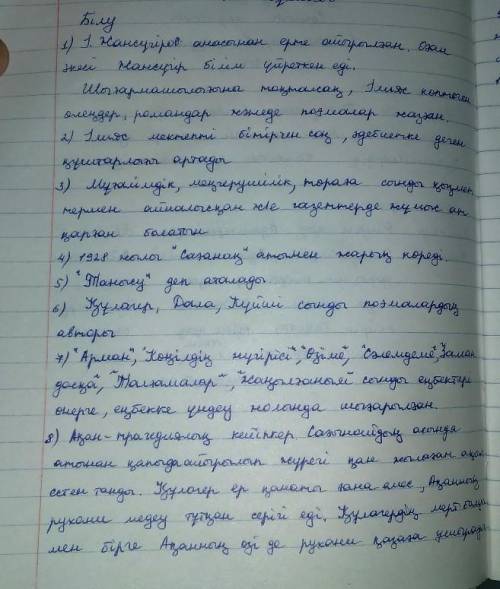 Білу
1) І. Жансүгіров анасынан ерте айырылған. Оған
әкесі Жансүгір білім үйреткен еді.
Шығармашылығына тоқталсақ, Ілияс көптеген
өлеңдер, романдар және де поэмалар жазған.
2) Ілияс мектепті бітірген соң, әдебиетке деген
құштарлығы артады
3) Мұғалімдік, меңгерушілік, төраға сынды қызмет
термен айналысқан және газеттерде жұмыс ат
қарған болатын
4) 1928 жылы "Сағанақ" атымен жарық көреді.
5) "Танысу" деп аталады.
6) Құлагер, Дала, Күйші сынды поэмалардың
авторы
7) "Арман", "Көңілдің жүгірісі", "Өзіме", "Сәлемдеме", "Заман
досқа", "Талтамалар", сынды еңбектер
өнерге, еңбекке үндеу жолында шығарылған.
8) Ақан-трагедиялық кейіпкер. Сағынайдың асында
атынан қапыда айырылып жүрегі қан жылаған ақын
естен танды. Құлагер ер қанаты ғана емес, Ақанның
рухани медеу тұтқан серігі еді. Құлагердің мерт болуы
мен бірге Ақанның өзі де рухани қазаға ұшырады